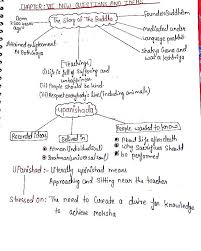 CHAPTER-VII NEW QUESTIONS AND IDEAS
Born
2500 years
ago
The Story of The Buddha
Founder Buddhism
Attained enlightenment
Meditated under
Shakya Gana and
Teachings
Life is full of Suffering and
unhappiness
People should be kind
Respect everybody's live (including animals)
Upanishads
Recorded Ideas
Believed in
People wanted to know
Atman (Individual soul)
Brahman (universal soul)
About life after death
Why Sacrifices Should
be performed
Upanishad :- Literally upanishad means
Approaching and Sitting near the teacher
Stressed on: The need to Create a desire for knowledge
to achieve moksha